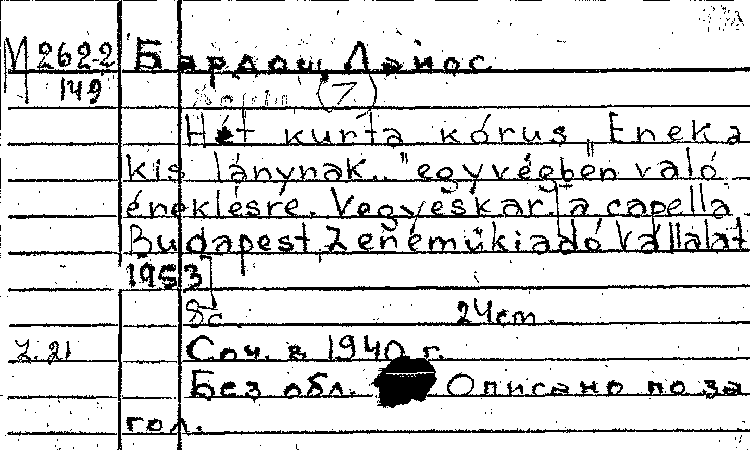 М 262-2
149
Бардош, Лайос
(7)
Hét kurta kórus „Ének a
kis lánynak..." egyvégben való
éneklésre. Vegyeskar, a capella
Budapest, Zeneműkiadó Vállalat
1953]
8с. 24cm.
Z. 21
Соч. в 1940 г.
Без обл. Описано по за
гол.